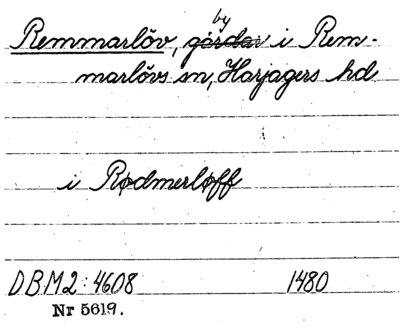 by
Remmarlöv, gårdar i Rem-
marlövs sn, Harjagers hd
i Rødmerløff
DBM2:4608 1480
Nr 5619.